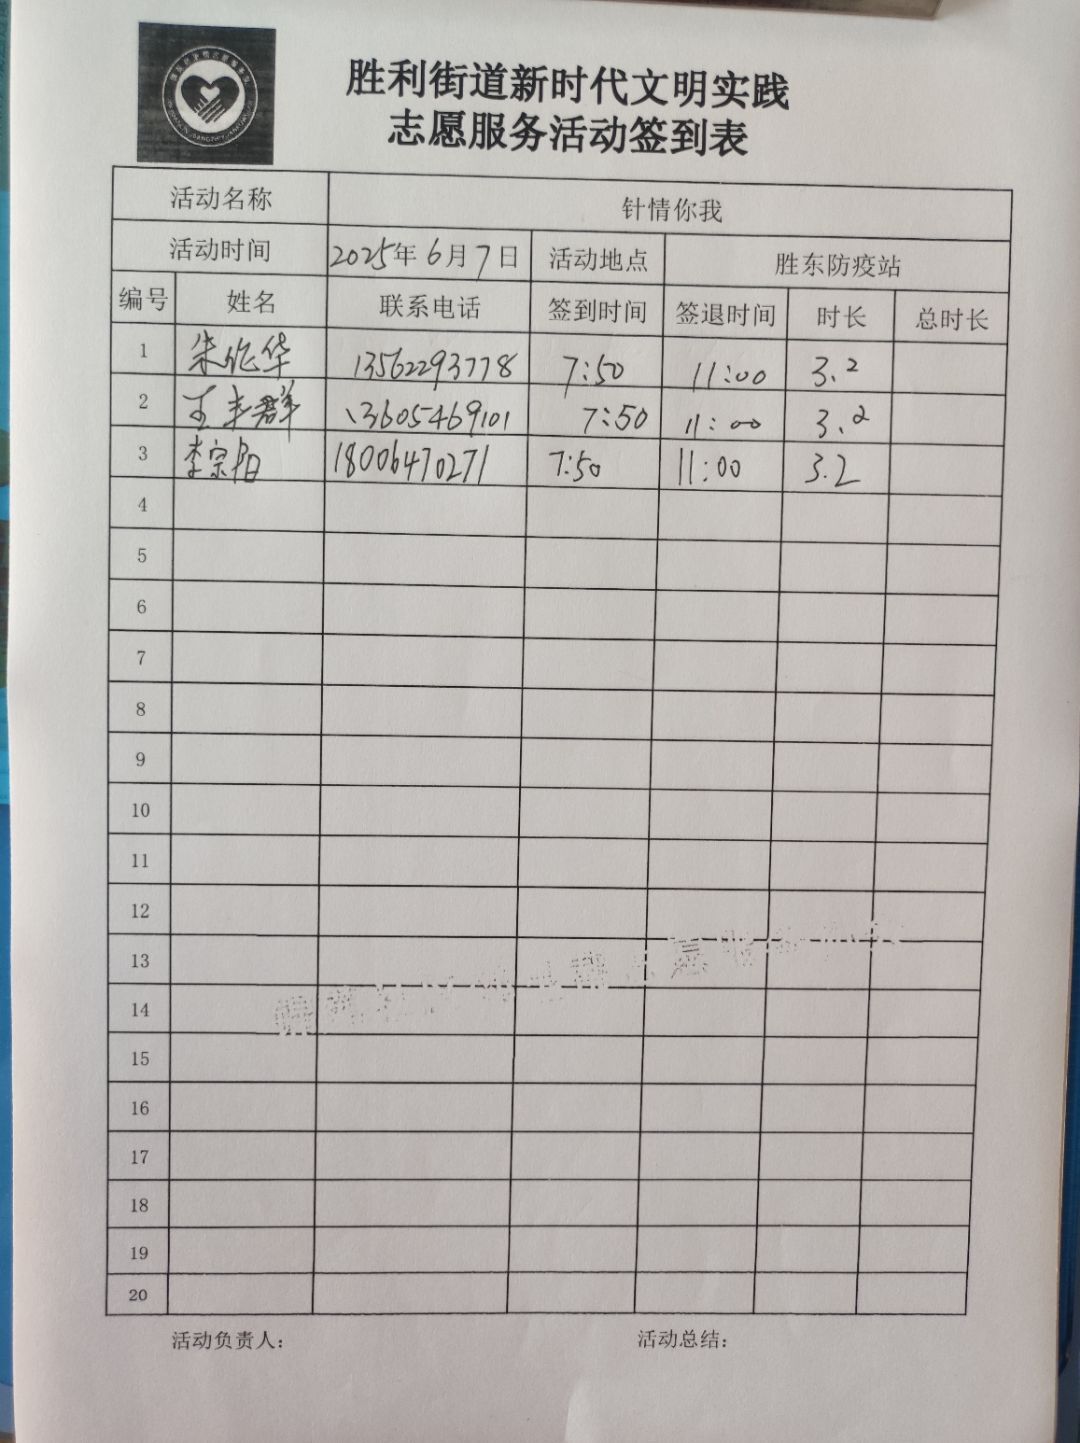 胜利街道新时代文明实践
志愿服务活动签到表
活动名称 针情你我
活动时间 2025年6月7日 活动地点 胜东防疫站
编号 姓名 联系电话 签到时间 签退时间 时长 总时长
1 朱作华 13562293778 7:50 11:00 3.2
2 王丰群 13605469101 7:50 11:00 3.2
3 李宗阳 18006470271 7:50 11:00 3.2
4
5
6
7
8
9
10
11
12
13
14
15
16
17
18
19
20
活动负责人: 活动总结: